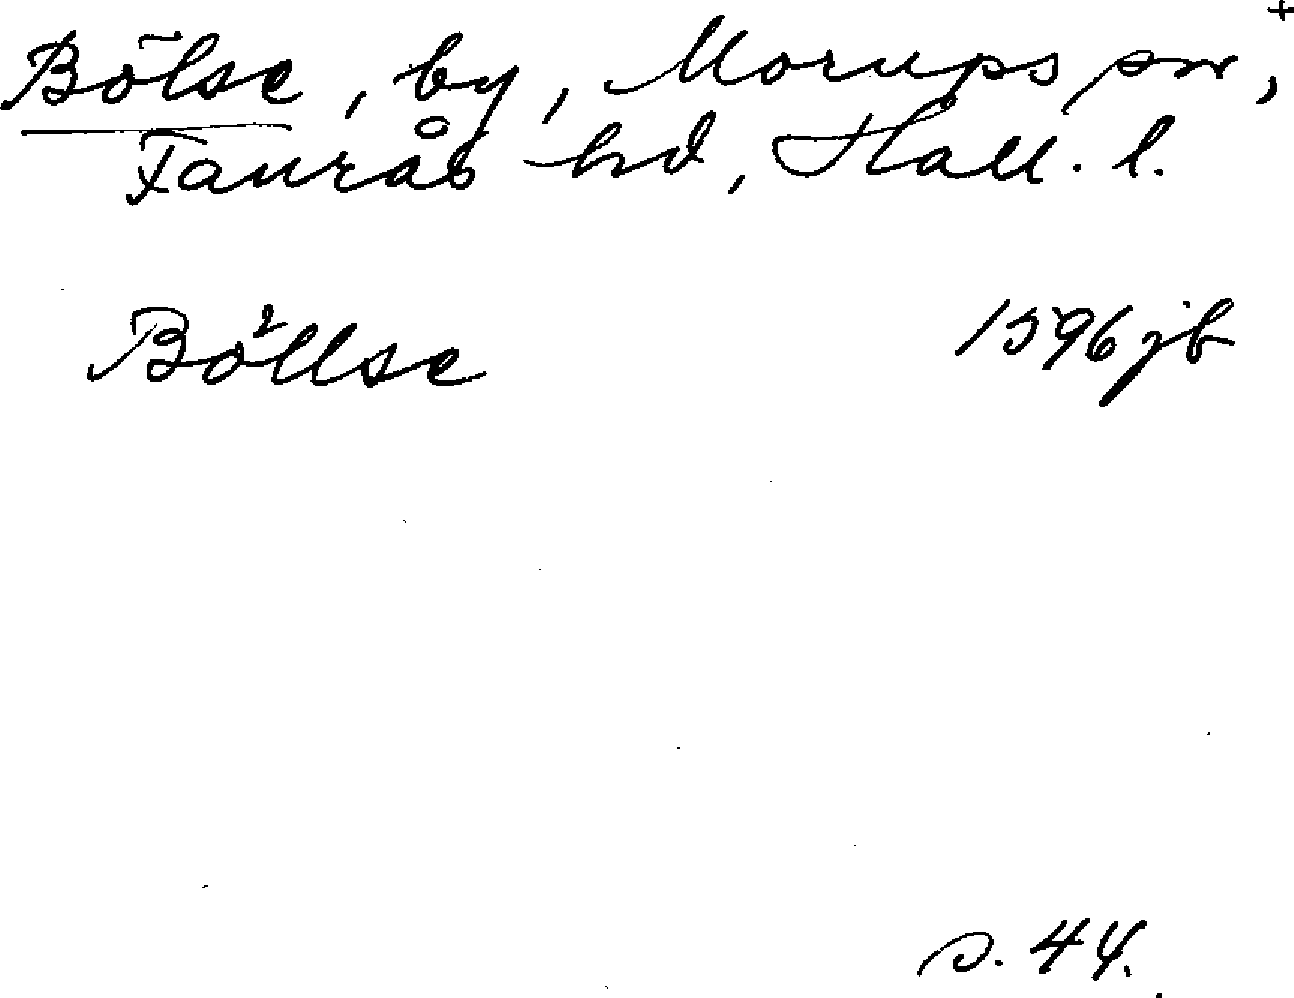 +
Bölse, by, Morups sn,
Faurås hd, Hall. l.
Böllse 1596 jb
s. 44.